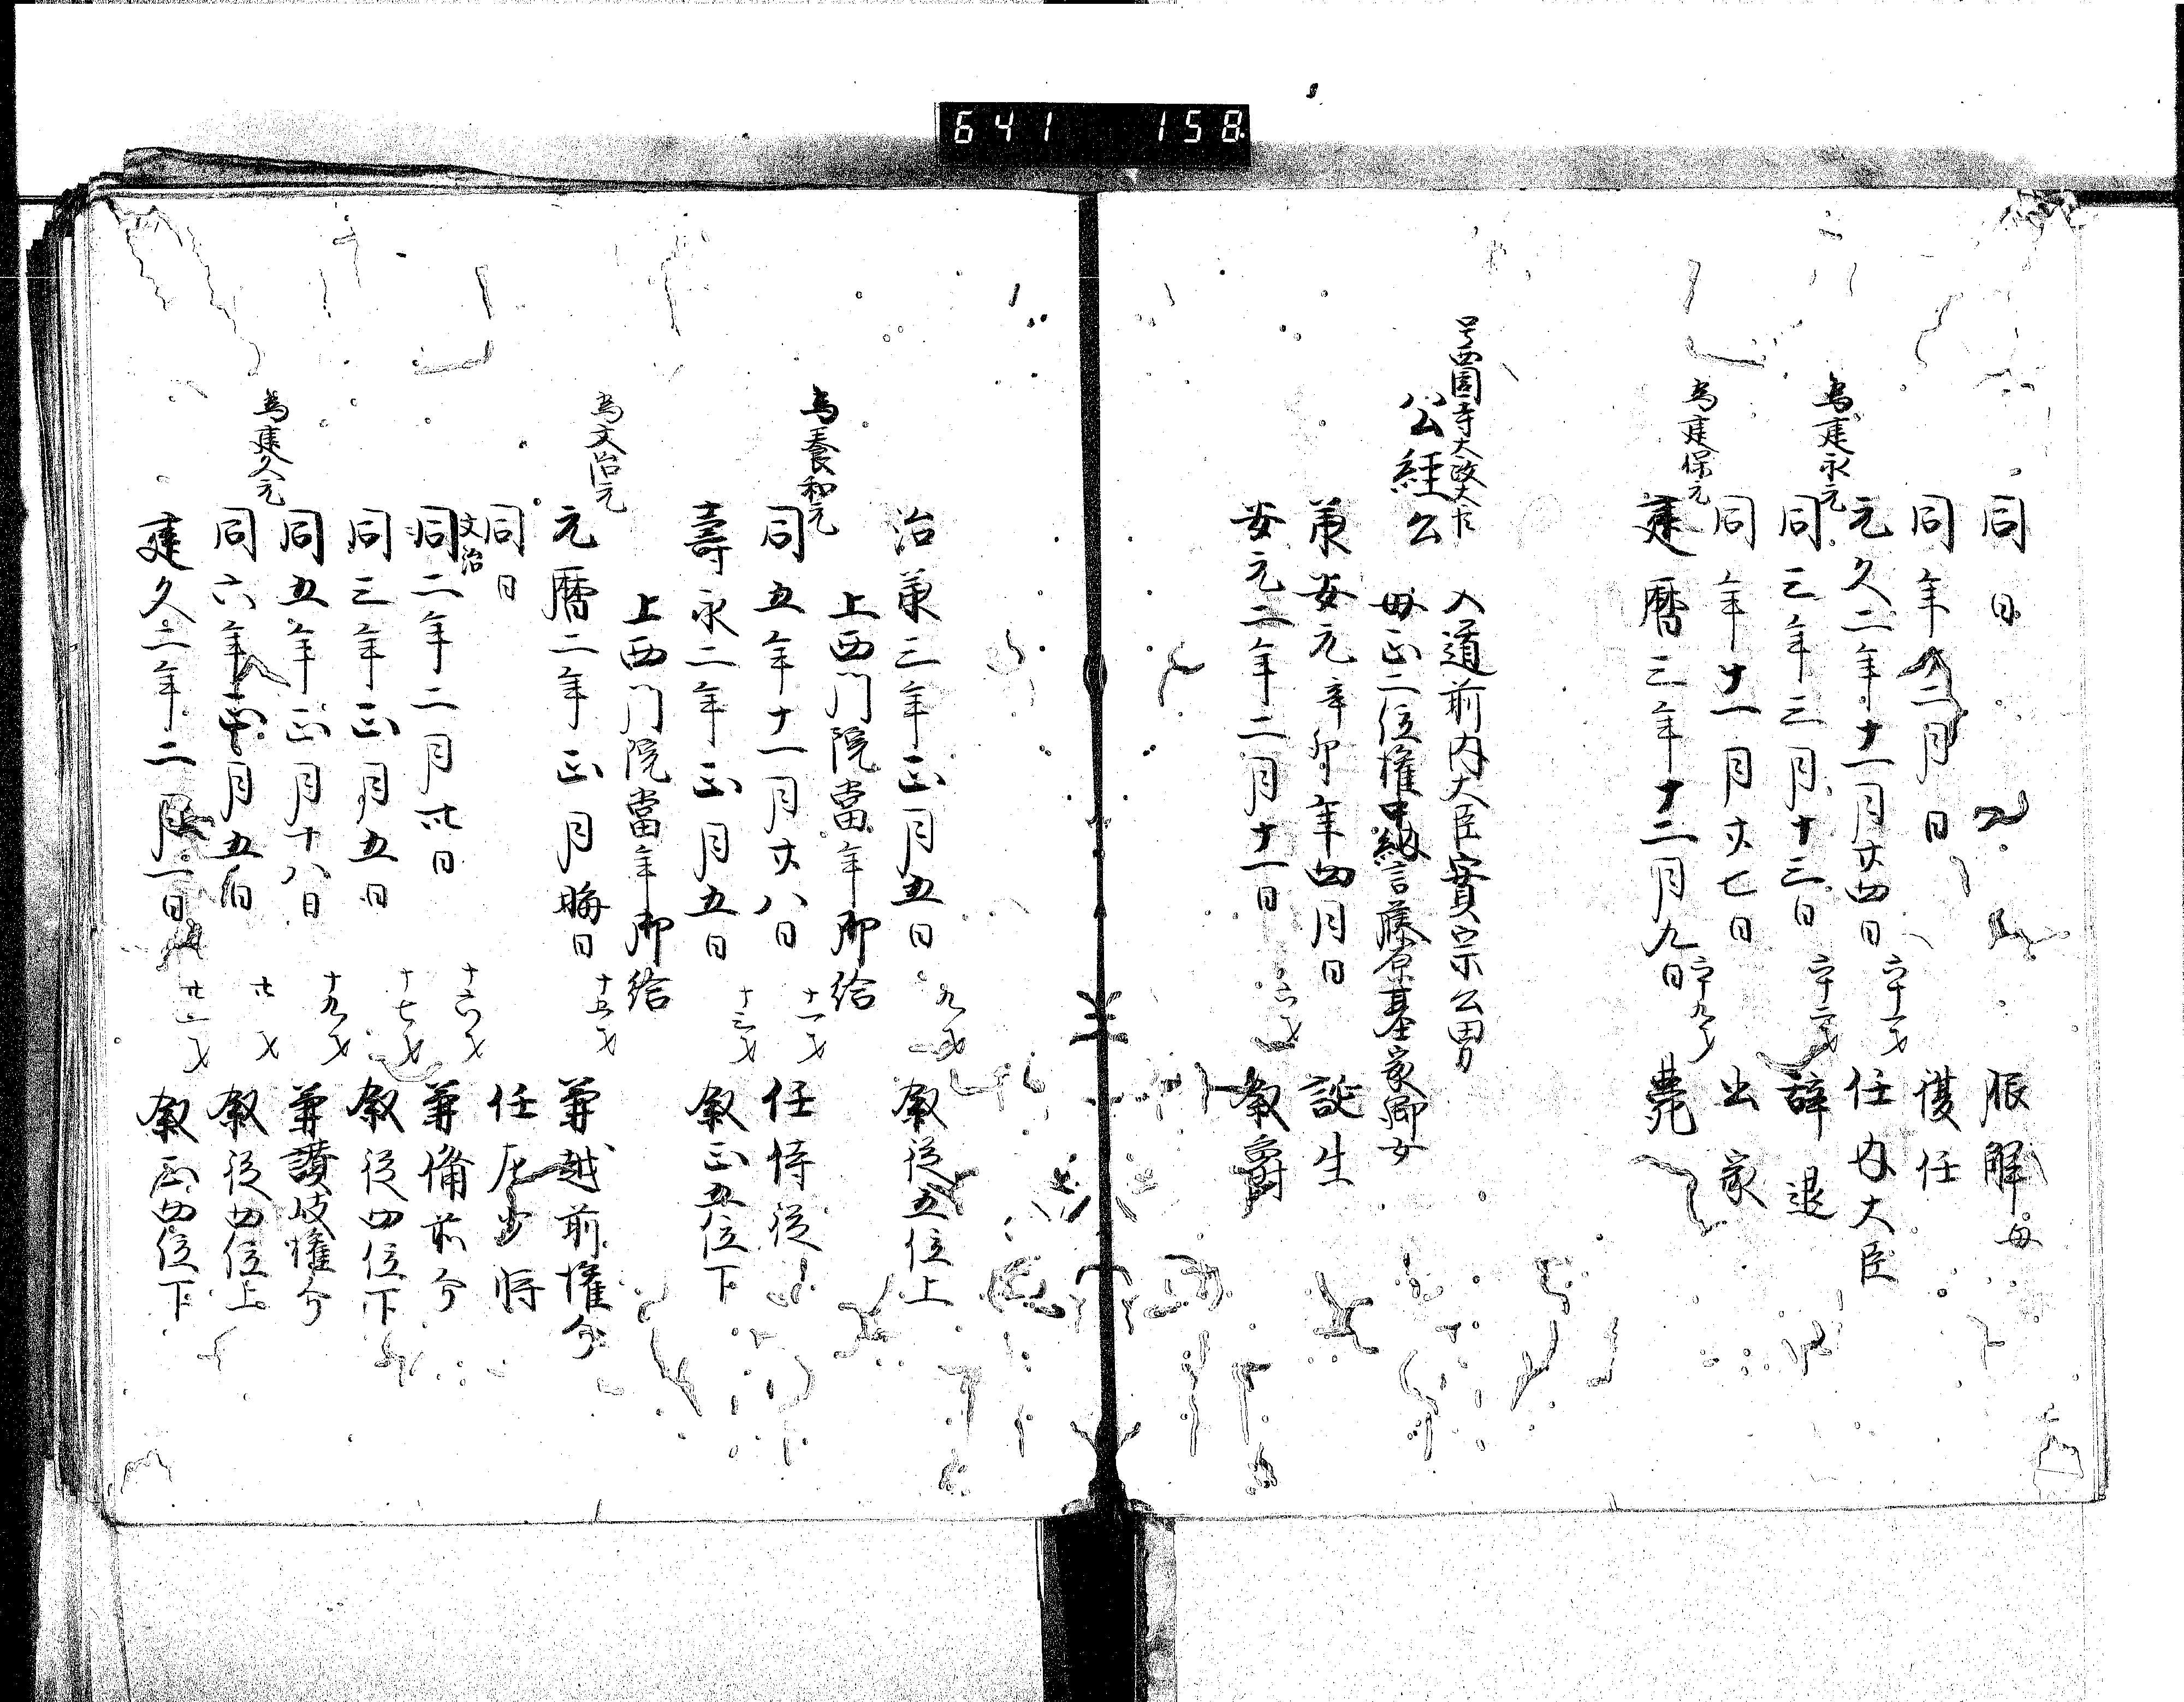 641 158
同日 服解母
同年二月日 復任
元久二年十一月廿四日 六十一才 任内大臣
為建永元
同三年三月十三日 六十二才 辞退
同年十一月廿七日 出家
為建保元
建暦三年十二月九日 六十九才 薨
号西園寺大政大臣
公経公 入道前内大臣實宗公男
母正二位權中納言藤原基家卿女
承安元辛卯年四月日 誕生
安元二年二月十一日 六才 敘爵
治承三年正月五日 九才 敘從五位上
上西門院當年御給
為養和元
同五年十一月廿八日 十一才 任侍從
壽永二年正月五日 十三才 敘正五位下
上西門院當年御給
為文治元
元暦二年正月晦日 十五才 兼越前權介
同日 任左少将
文治
同二年二月卅日 十六才 兼備前介
同三年正月五日 十七才 敘從四位下
同五年正月十八日 十九才 兼讃岐權介
為建久元
同六年正月五日 廿才 敘從四位上
建久二年二月一日 廿一才 敘正四位下